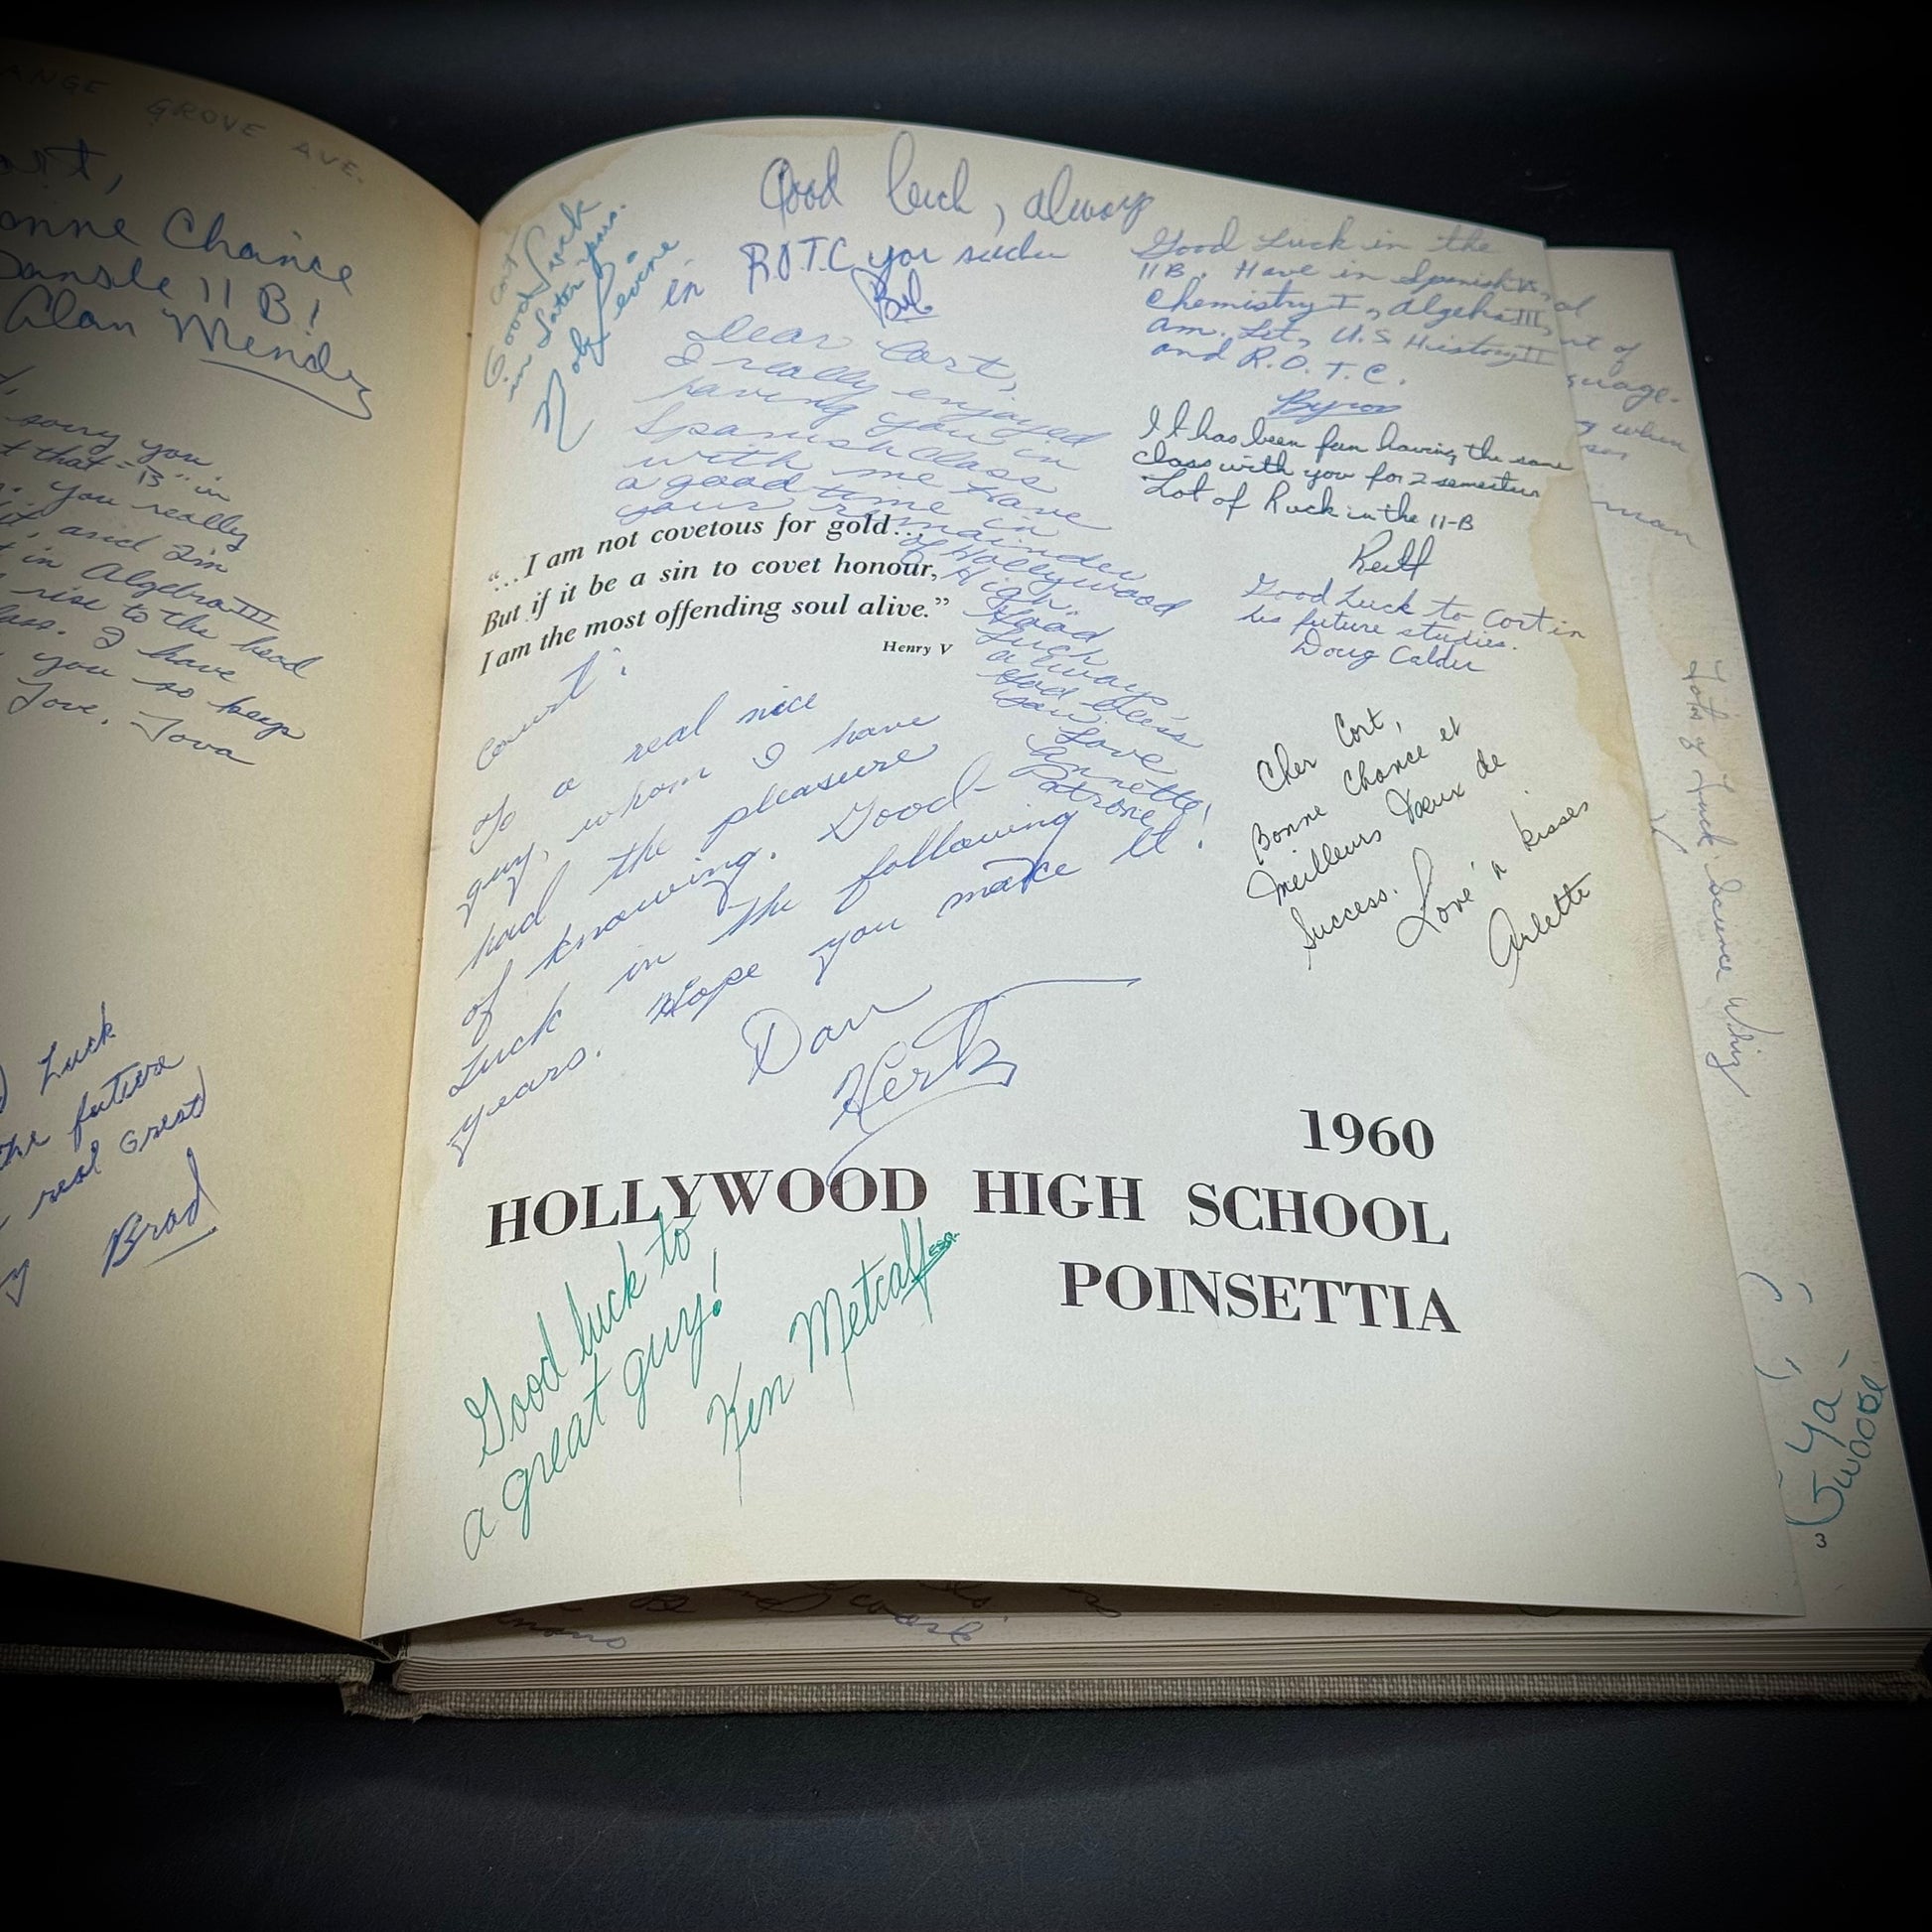 ANGE GROVE AVE.
Chance
11 B!
Alan Mendz
sorry you
that "B" in
you really
it, and I'm
in Algebra III
rise to the head
I have
you so keep
Love, Tova
Luck
the future
real Great
Brad
Good luck, always
in R.O.T.C you
Bob
Cort
Good Luck
in later years.
Dear Cort,
I really enjoyed
having you in
Spanish class
with me Have
a good time in
your remainder
of Hollywood
High.
Good
Luck
always
God bless
you.
Love
Annette
Patrone!
Good Luck in the
11B. Have in Spanish
Chemistry I, Algebra III,
Am. Lit, U.S History II
and R.O.T.C.
Byron
It has been fun having the same
class with you for 2 semesters
Lot of Luck in the 11-B
Good Luck to Cort in
his future studies.
Doug Calder
"...I am not covetous for gold...
But if it be a sin to covet honour,
I am the most offending soul alive."
Henry V
Court:
To a real nice
guy, whom I have
had the pleasure
of knowing. Good-
Luck in the following
years. Hope you make it!
Dan
Hertz
Cher Cort,
Bonne Chance et
Meilleurs Voeux de
Success.
Love 'n kisses
Arlette
1960
HOLLYWOOD HIGH SCHOOL
POINSETTIA
Good luck to
a great guy!
Ken Metcalf ESQ.
of
when
Lots of Luck Science Whiz
Ya
3